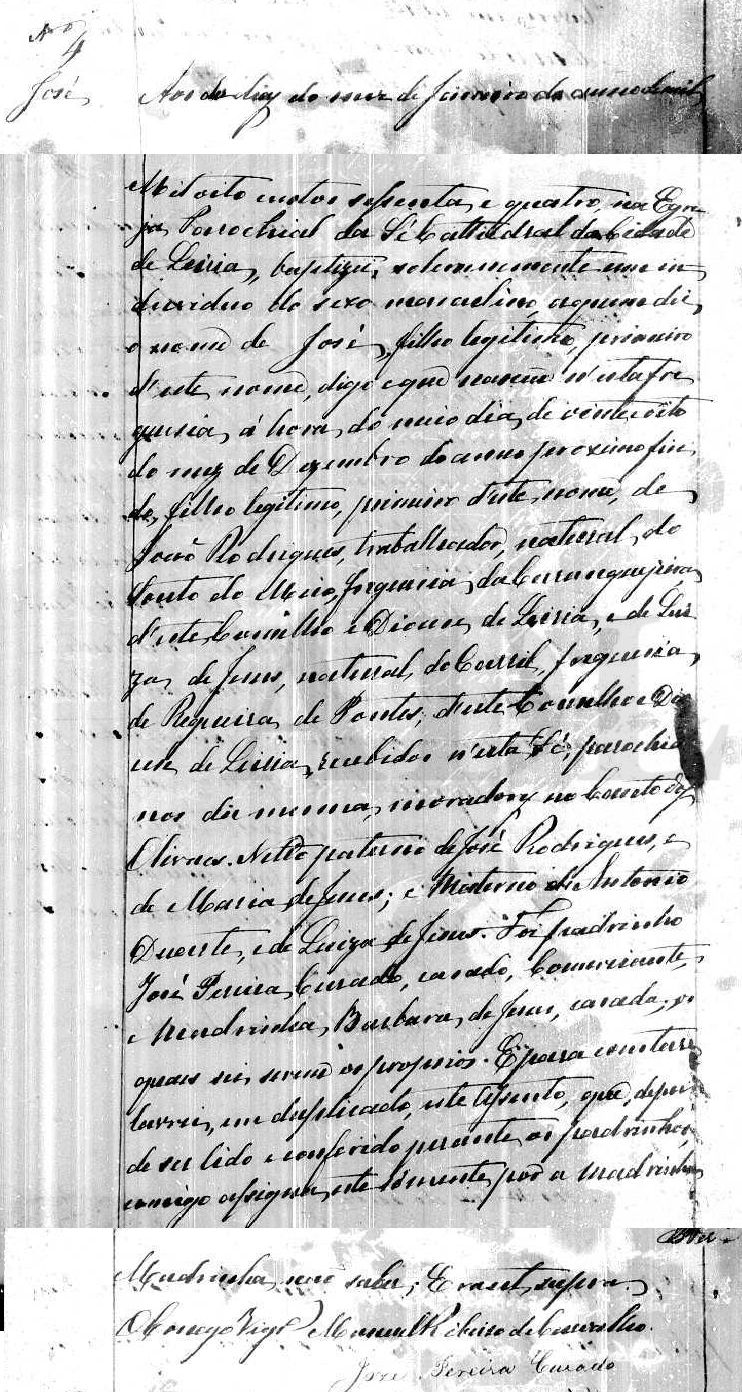 Nº 4
José Aos dez dias do mez de Janeiro do anno de mil
Mil oito centos sessenta, e quatro, na Egre
ja Parochial da Sé Cathedral da Cidade
de Leiria, baptizei, solemnemente um in
dividuo do sexo masculino, a quem dei,
o nome de José, filho legitimo, primeiro
d'este nome, digo e que nasceu n'esta fre
guesia, á hora do meio dia, de vinte oito
do mez de Dezembro do anno proximo fin
do, filho legitimo, primeiro d'este nome, de
João Rodrigues, trabalhador, natural, do
Souto do Meio, freguesia, da Carangueijeira,
d'este Concelho e Diocese, de Leiria, e de Lui
za, de Jesus, natural, do Carril, freguesia,
de Regueira, de Pontes, d'este Concelho e Dio
cese, de Leiria, recebidos n'esta Sé, parochia
nos da mesma, moradores no Couto dos
Olivaes. Netto paterno de José Rodrigues, e
de Maria de Jesus; e Materno de Antonio
Duarte, e de Luiza de Jesus. Foi padrinho
José Pereira, Curado, casado, Comerciante,
e Madrinha, Barbara, de Jesus, casada, os
quaes sei, serem os proprios. E para constar
lavrei, em duplicado, este Assento, que, depois
de ser lido e conferido perante, os padrinhos
comigo assigna, este sómente, por a madrinha
Madrinha, não saber; Era ut, supra.
O Conego Vigrº Manuel Ribeiro de Carvalho.
José Pereira Curado